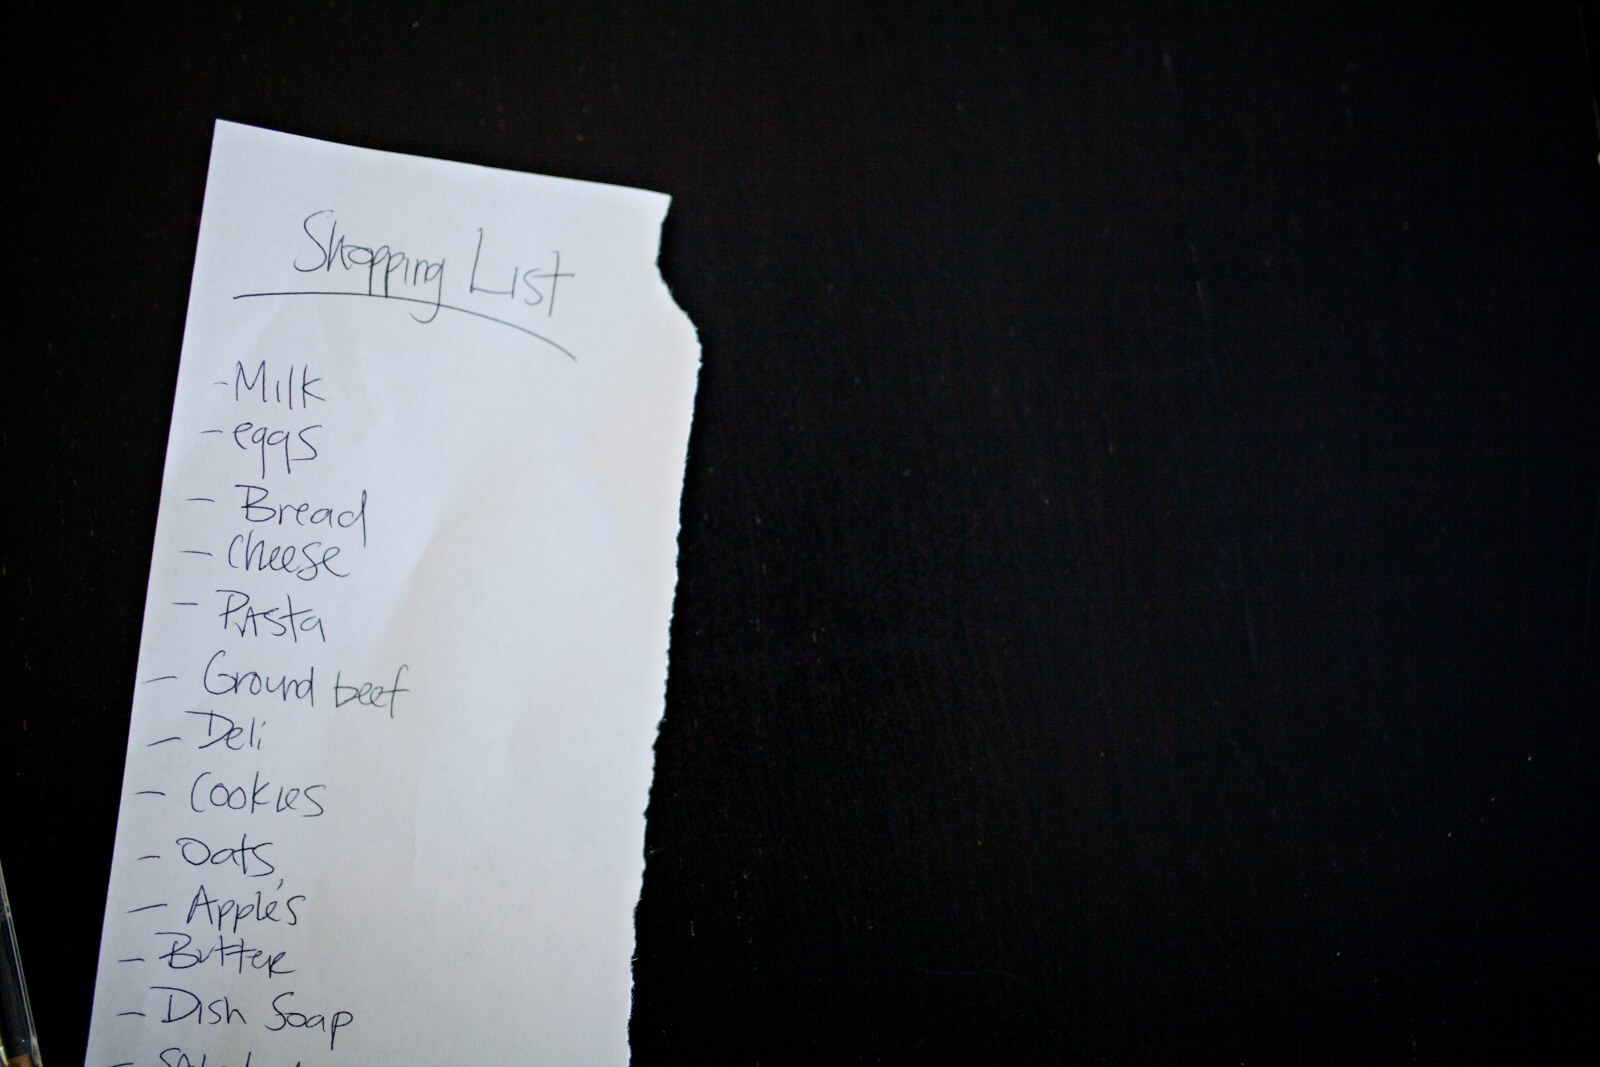 Shopping List
- Milk
- eggs
- Bread
- Cheese
- PAsta
- Ground beef
- Deli
- Cookies
- Oats
- Apple's
- Butter
- Dish Soap